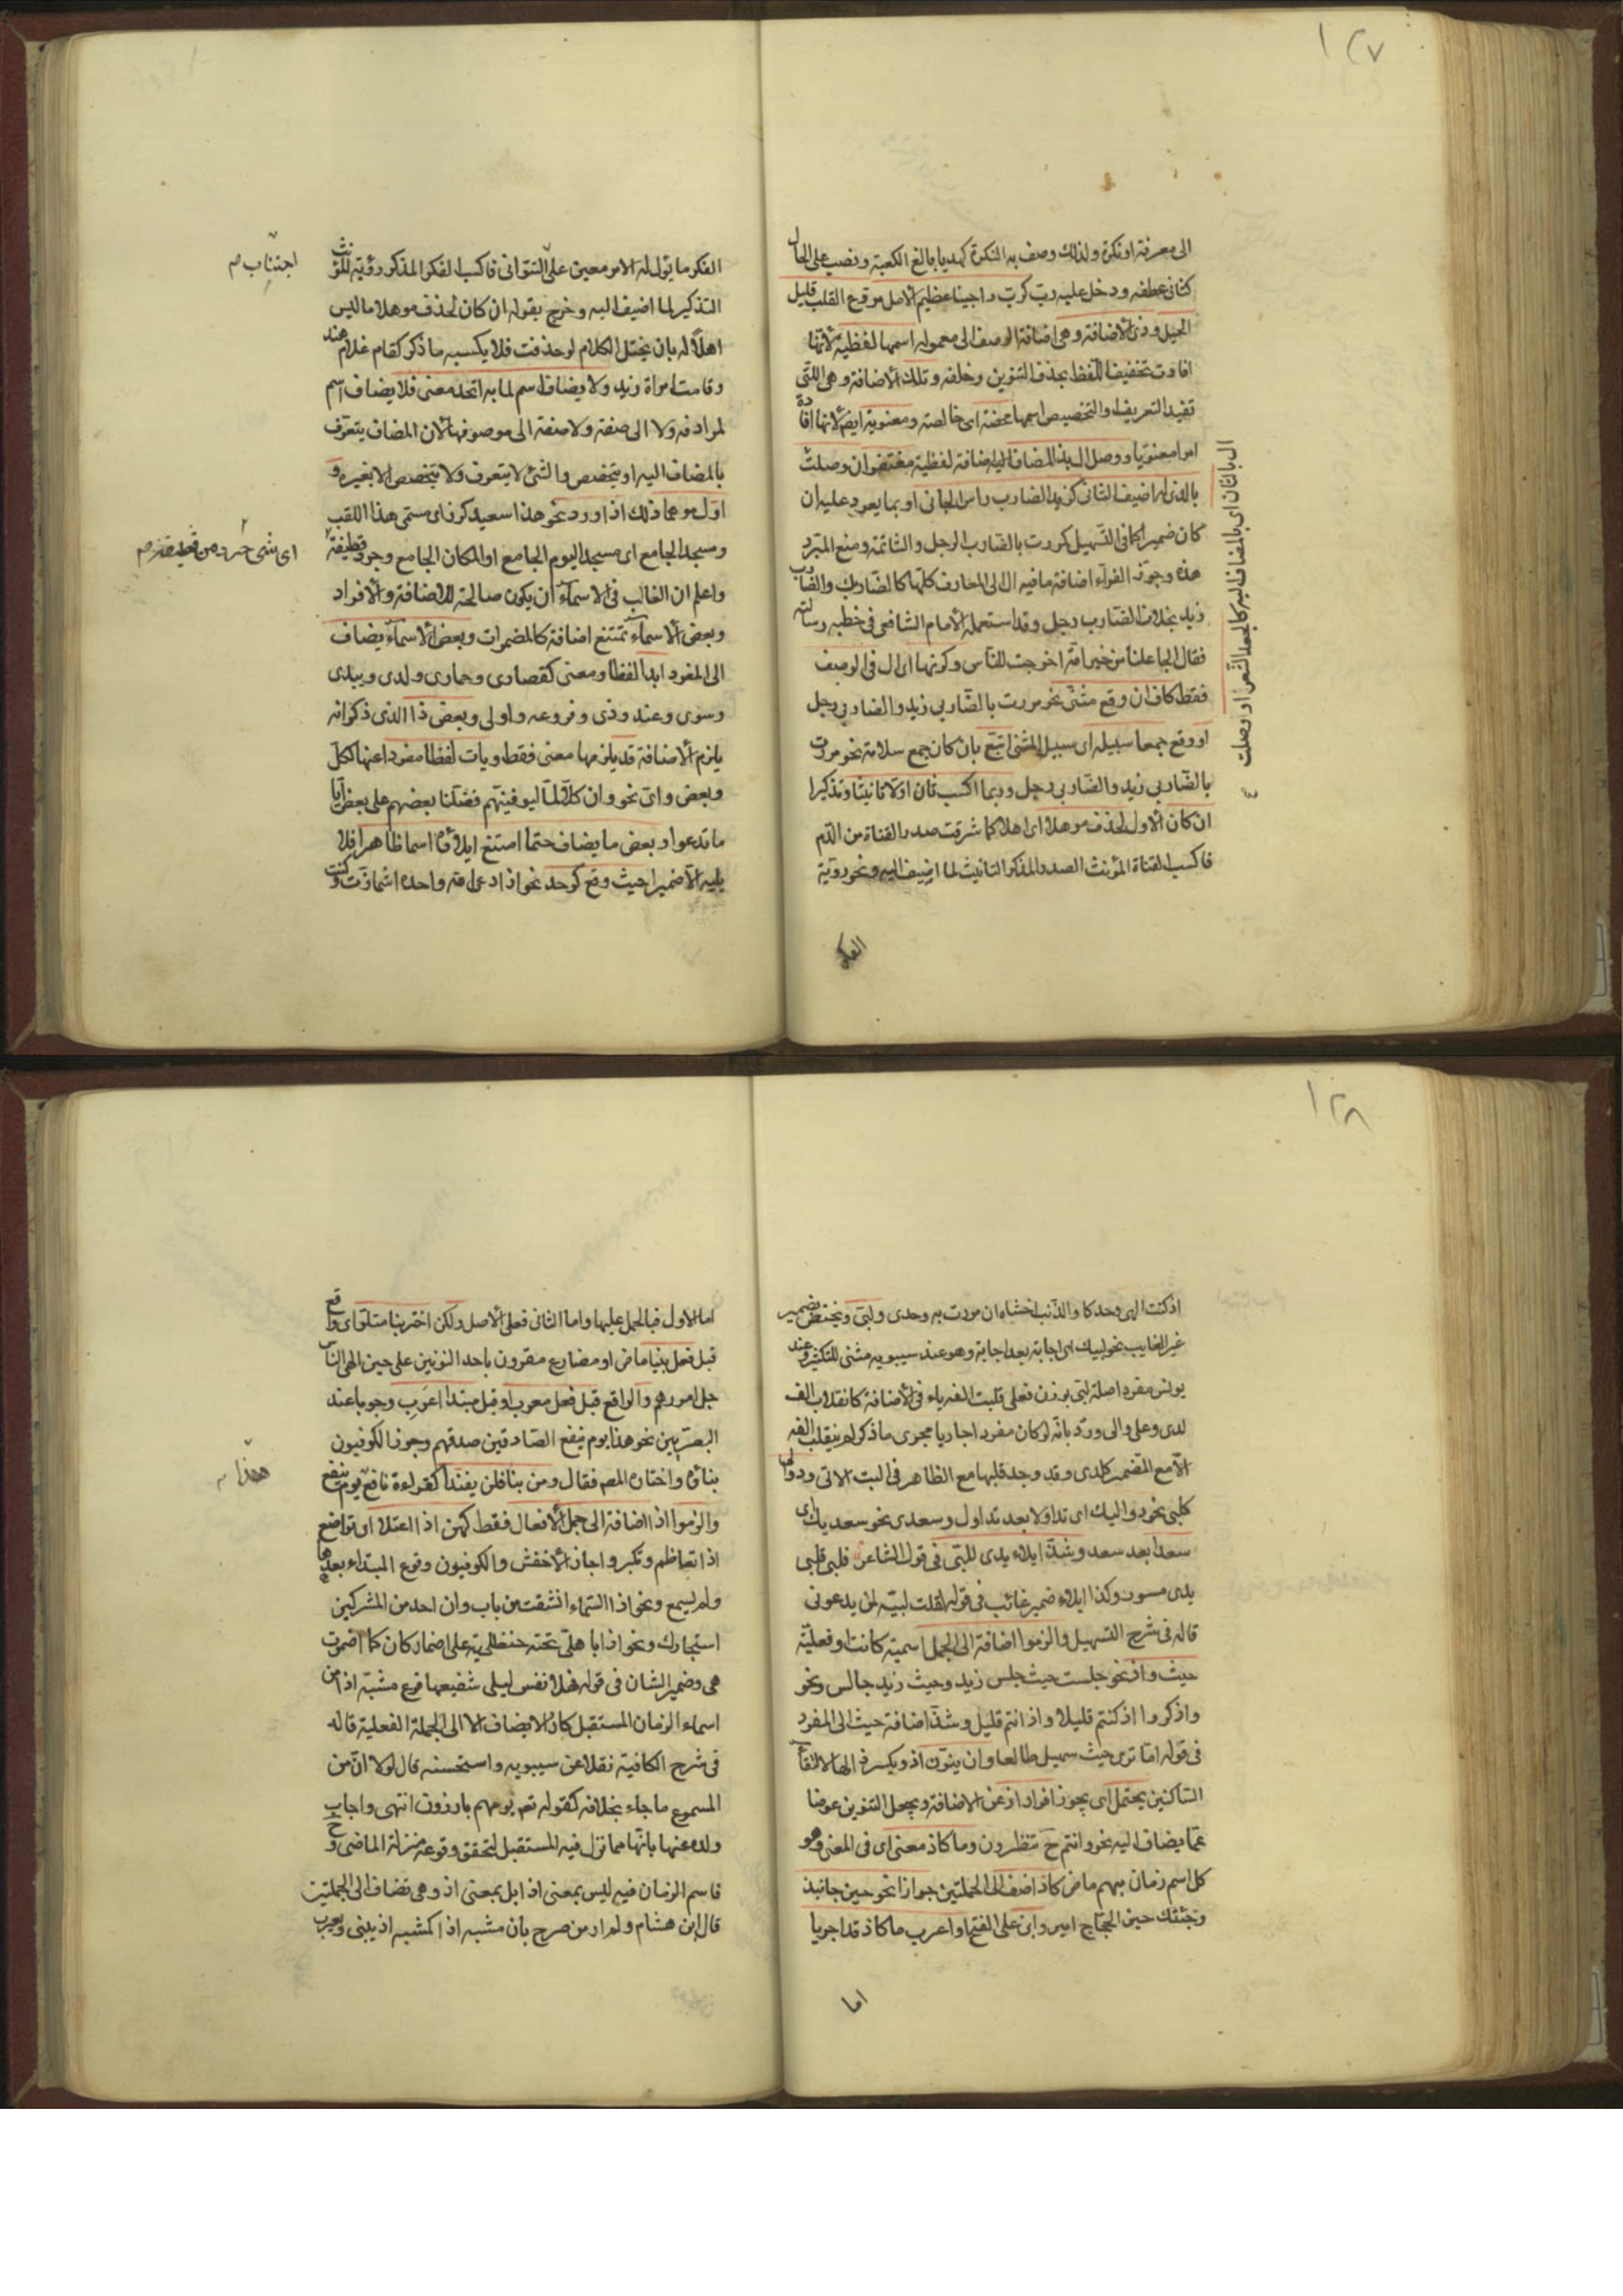 ١٢٧
الى معرفة او نكرة ولذلك وصف به النكرة كهديا بالغ الكعبة ونصب على الحال
كثانى عطفه ودخل عليه رب كرب راجينا عظيم الامل مروع القلب قليل
الحيل وذى الاضافة وهى اضافة الوصف الى معموله اسمها لفظية لانها
افادت تخفيف اللفظ بحذف التنوين وخلفه وتلك الاضافة وهى اللتى
تفيد التعريف او التخصيص اسمها محضة اى خالصة ومعنوية ايضا لانها افادة
امرا معنويا ووصل ال بذا المضاف اى اضافة لفظية مغتفر ان وصلت
ال بالثان اى بالمضاف اليه كالجعد الشعر او وصلت
بالذى له اضيف الثانى كزيد الضارب راس الجانى او بما يعود عليه ان
كان ضميرا كما فى التسهيل كمررت بالضارب الرجل والشاتمه ومنع المبرد
هذه وجوز الفراء اضافة ما فيه ال الى المعارف كلها كالضاربك والضارب
زيد بخلاف الضارب رجل وقد استعمله الامام الشافعى فى خطبه رسالته
فقال الجاعلنا من خير امة اخرجت للناس وكونها اى ال فى الوصف
فقط كاف ان وقع مثنى نحو مررت بالضاربى زيد والضاربى رجل
او وقع جمعا سبيله اى سبيل المثنى اتبع بان كان جمع سلامة نحو مررت
بالضاربى زيد والضاربى رجل وربما اكسب ثان اولا تانيثا وتذكيرا
ان كان الاول لحذف موهلا اى اهلا كما شرقت صدر القناة من الدم
فاكسب القناة المؤنث الصدر المذكر التانيث لما اضيف اليه ونحو رؤية
الفكر
الفكر ما يؤل له الامر معين على التوانى فاكسب الفكر المذكر رؤية المؤنث
اجتناب م
التذكير لما اضيف اليه وخرج بقوله ان كان لحذف موهلا ما ليس
اهلا له بان يختل الكلام لو حذفت فلا يكسبه ما ذكر كقام غلام هند
وقامت امراة زيد ولا يضاف اسم لما به اتحد معنى فلا يضاف اسم
لمرادفه ولا الى صفته ولا صفة الى موصوفها لان المضاف يتعرف
بالمضاف اليه او يتخصص والشئ لا يتعرف ولا يتخصص الا بغيره و
اول موهما ذلك اذا ورد نحو هذا سعيد كرز اى مسمى هذا اللقب
ومسجد الجامع اى مسجد اليوم الجامع او المكان الجامع وجرد قطيفة
اى شى جرد من قطيفة م
واعلم ان الغالب فى الاسماء ان يكون صالحة للاضافة والافراد
وبعض الاسماء تمتنع اضافة كالمضمرات وبعض الاسماء يضاف
الى المفرد ابدا لفظا ومعنى كقصارى وحمارى ولدى وبيدى
وسوى وعند وذى وفروعه واولى وبعض ذا الذى ذكر انه
يلزم الاضافة قد يلزمها معنى فقط ويات لفظا مفردا عنها ككل
وبعض واى نحو وان كلا لما ليوفينهم فضلنا بعضهم على بعض ايا
ما تدعوا وبعض ما يضاف حتما امتنع ايلاؤه اسما ظاهرا فلا
يليه الا ضمير حيث وقع كوحد نحو اذا دعى الله واحده اشمازت وكنت
١٢٨
اذ كنت الهى وحدكا والذئب اخشاه ان مررت به وحدى ولبى ويختص بضمير
غير الغايب نحو لبيك اى اجابة بعد اجابة وهو عند سيبويه مثنى للتكثير وعند
يونس مفرد اصله لبى بوزن فعلى قلبت الفه ياء فى الاضافة كانقلاب الف
لدى وعلى والى ورد بانه لو كان مفردا جاريا مجرى ما ذكر لم ينقلب الفه
الا مع المضمر كلدى وقد وجد قلبها مع الظاهر فى البت الاتى ودوالى
كلبى نحو دواليك اى تداولا بعد تداول وسعدى نحو سعديك اى
سعدا بعد سعد وشذ ايلاء يدى للبى فى قول الشاعر فلبى فلبى
يدى مسور وكذا ايلاء ضمير غائب فى قوله لقلت لبيه لمن يدعونى
قاله فى شرح التسهيل والزموا اضافة الى الجمل اسمية كانت او فعلية
حيث واذ نحو جلست حيث جلس زيد وحيث زيد جالس ونحو
واذكروا اذ كنتم قليلا واذ انتم قليل وشذ اضافة حيث الى المفرد
فى قوله اما ترى حيث سهيل طالعا وان ينون اذ ويكسر ذالها لالتقاء
الساكنين يحتمل اى يجوز افراد اذ عن الاضافة ويجعل التنوين عوضا
عما يضاف اليه نحو وانتم ح تنظرون وما كاذ معنى اى فى المعنى وهو
كل اسم زمان مبهم ماض كاذ اضف الى الجملتين جوازا نحو حين جانبذ
وجئتك حين الحجاج امير وابن على الفتح او اعرب ما كاذ قد اجريا
اما
اما الاول فبالحمل عليها واما الثانى فعلى الاصل ولكن اختر بنا متلو اى واقع
قبل فعل بنيا ماض او مضارع مقرون باحد النونين على حين الهى الناس
جل امورهم والواقع قبل فعل معرب او قبل مبتدا اعرب وجوبا عند
البصريين نحو هذا يوم ينفع الصادقين صدقهم وجوز الكوفيون
هذا م
بناؤه واختاره المص فقال ومن بنا فلن يفندا كقراءة نافع يوم ينفع
والزموا اذا اضافة الى جمل الافعال فقط كهن اذا اعتلا او تواضع
اذا تعاظم وتكبر واجاز الاخفش والكوفيون وقوع المبتداء بعدها
ولم يسمع ونحو اذا السماء انشقت من باب وان احد من المشركين
استجارك ونحو اذا باهلى تحته حنظلية على اضمار كان كما اضمرت
هى وضمير الشان فى قوله فهلا نفس ليلى شفيعها فرع مشبه اذا من
اسماء الزمان المستقبل كاذا لا يضاف الا الى الجملة الفعلية قاله
فى شرح الكافية نقلا عن سيبويه واستحسنه قال لولا ان من
المسموع ما جاء بخلافه كقوله تع يوم هم بارزون انتهى واجاب
ولده عنها بانها مما نزل فيه المستقبل لتحقق وقوعه منزلة الماضى وح
فاسم الزمان فيه ليس بمعنى اذا بل بمعنى اذ وهى تضاف الى الجملتين
قال ابن هشام ولم ار من صرح بان مشبه اذا كمشبه اذ يبنى ويعرب